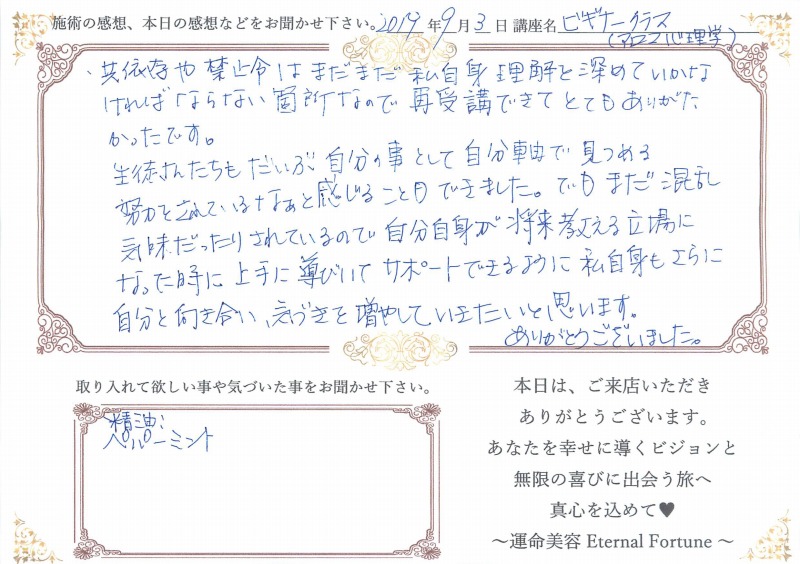 施術の感想、本日の感想などをお聞かせ下さい。2019年9月3日 講座名 ビギナークラス
(アロマ心理学)
、共依存や禁止令はまだまだ私自身理解を深めていかな
ければならない箇所なので再受講できてとてもありがた
かったです。
生徒さんたちもだいぶ自分の事として自分軸で見つめる
努力をされているなぁと感じることもできました。でもまだ混乱
気味だったりされているので自分自身が将来教える立場に
なった時に上手に導びいてサポートできるように私自身もさらに
自分と向き合い、気づきを増やしていきたいと思います。
ありがとうございました。
取り入れて欲しい事や気づいた事をお聞かせ下さい。
精油:
ペパーミント
本日は、ご来店いただき
ありがとうございます。
あなたを幸せに導くビジョンと
無限の喜びに出会う旅へ
真心を込めて♥
～運命美容 Eternal Fortune ～